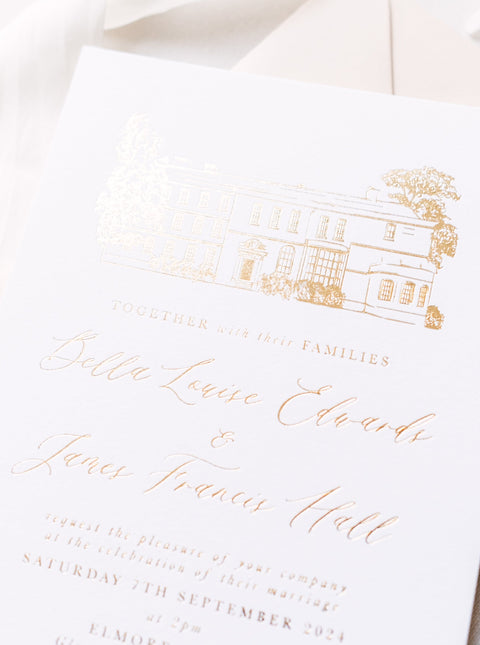 TOGETHER with their FAMILIES
Bella Louise Edwards
&
James Francis Hall
request the pleasure of your company
at the celebration of their marriage
SATURDAY 7TH SEPTEMBER 2024
at 2pm
ELMORE